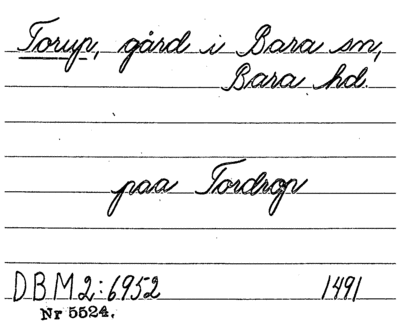 Torup, gård i Bara sn,
Bara hd.
paa Tordrop
DBM2:6952 1491
Nr 5524.